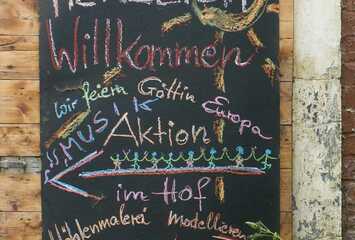 Willkommen
wir feiern Göttin Europa
MUSIK
Aktion
im Hof
Höhlenmalerei Modellieren